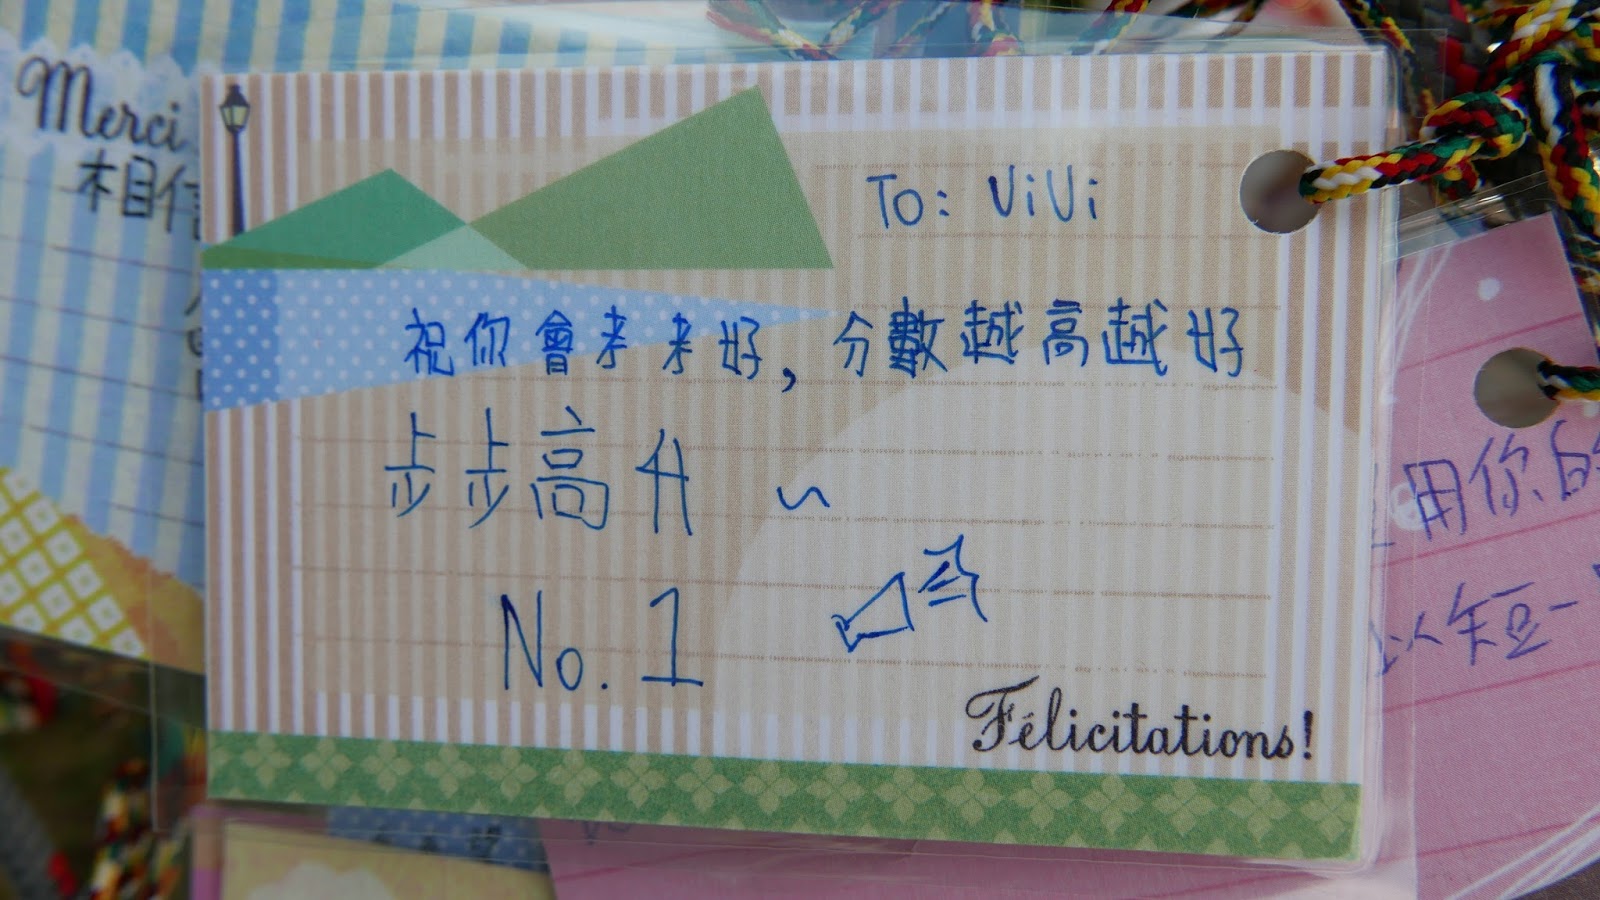 Merci
相信
To: ViVi
祝你會考考好,分數越高越好
步步高升~
No. 1
Félicitations!
用你的
以短